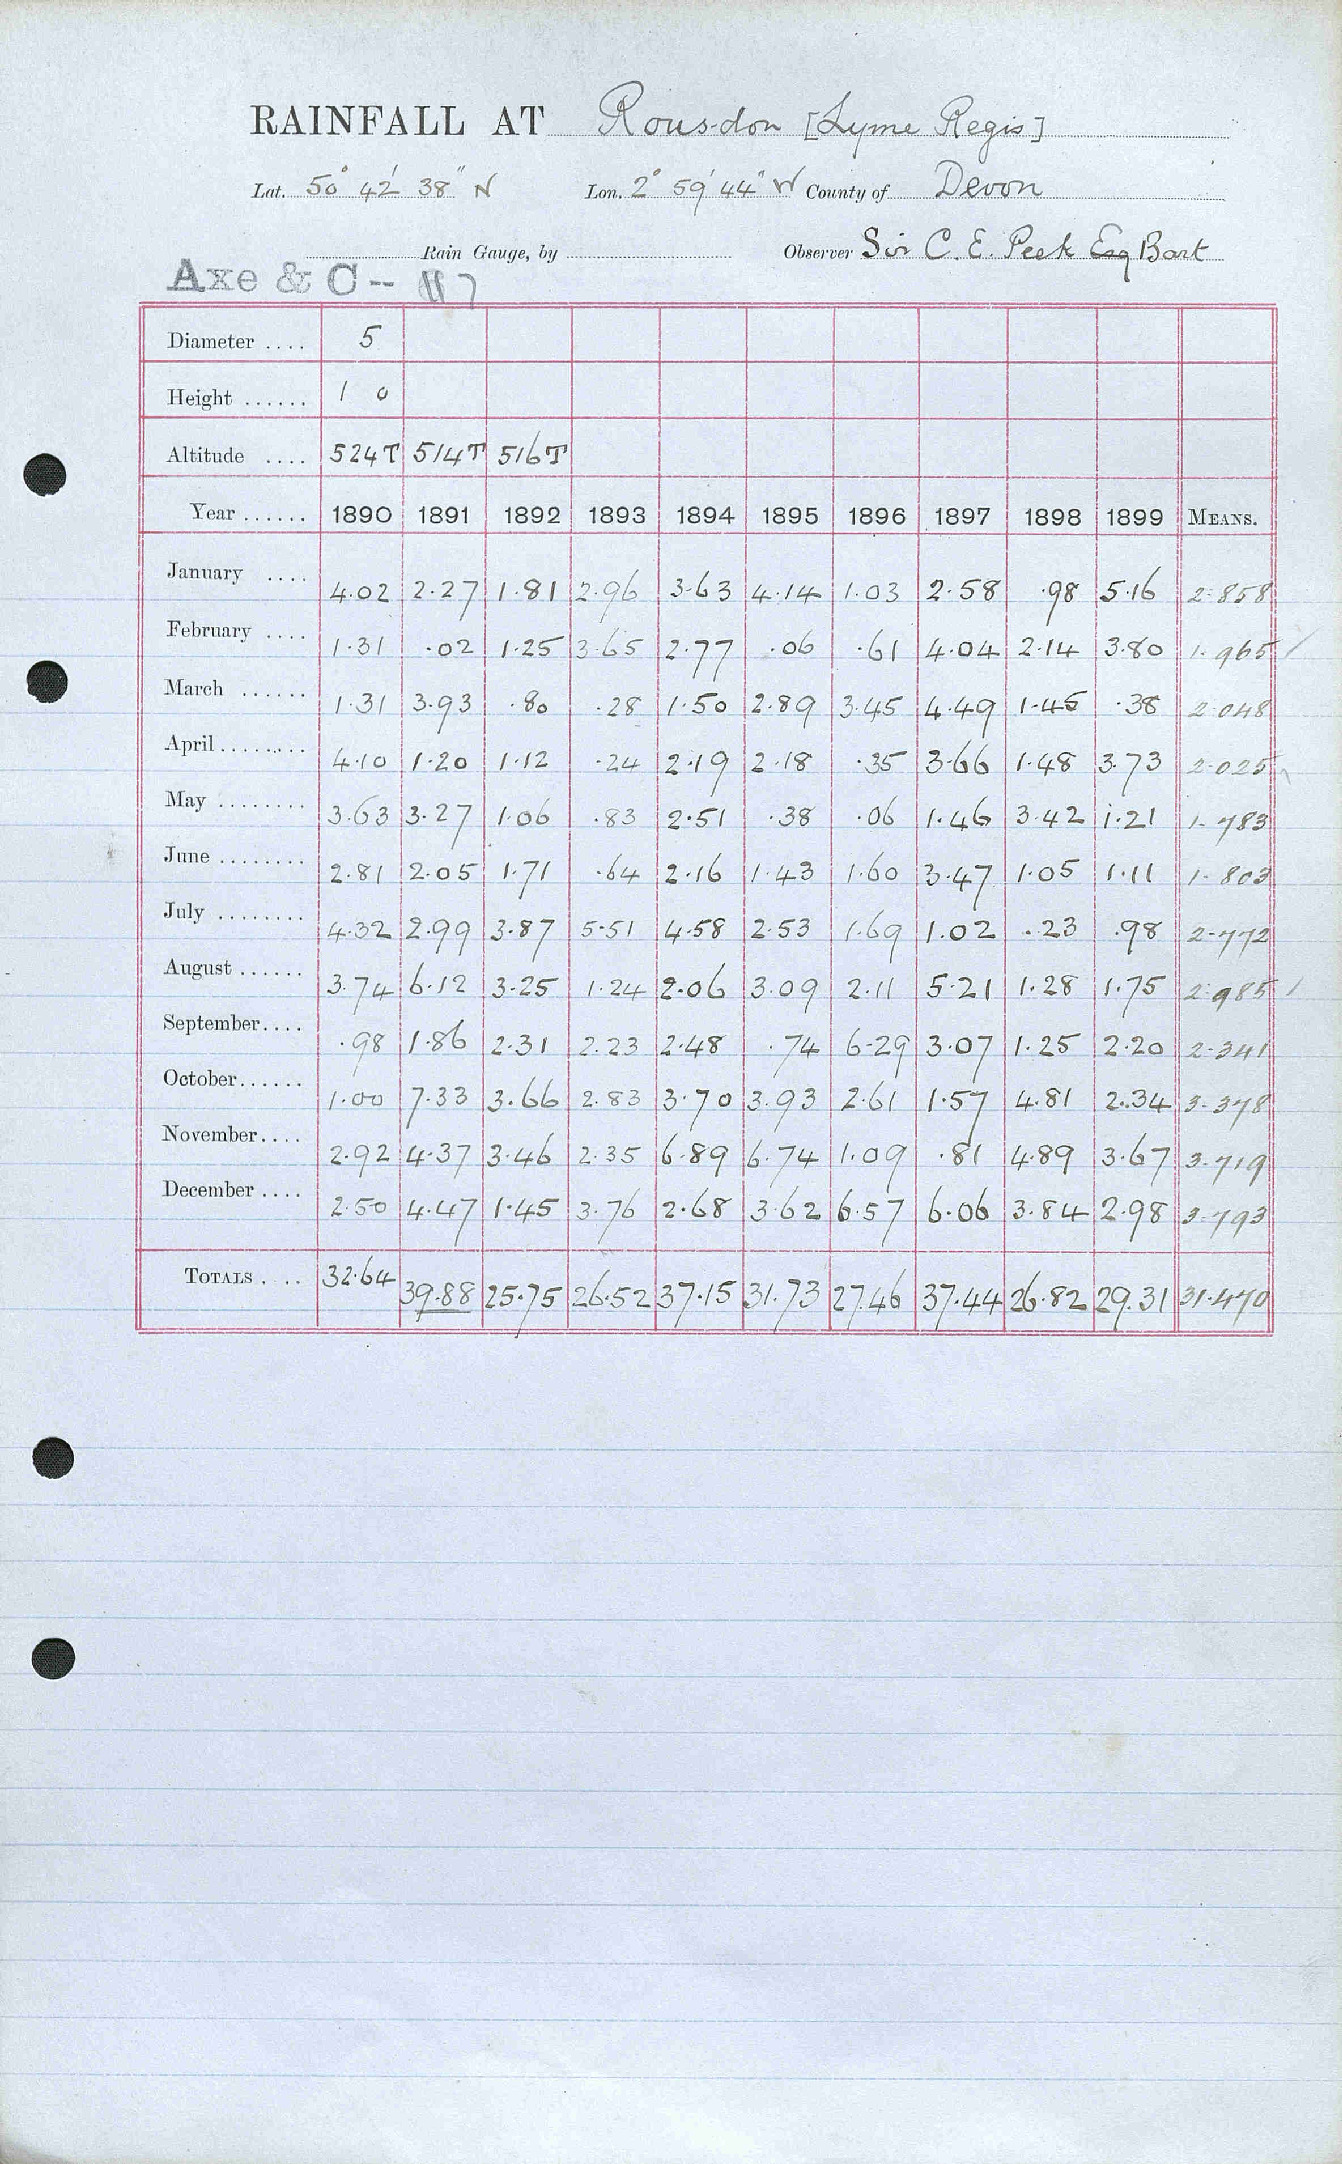 RAINFALL AT Rousdon [Lyme Regis]
Lat. 50° 42' 38" N Lon. 2° 59' 44" W County of Devon
Rain Gauge, by Observer Sir C. E. Peek Esq Bart
Axe & C -- 117
Diameter .... 5
Height ...... 1 0
Altitude .... 524T 514T 516T
Year ...... 1890 1891 1892 1893 1894 1895 1896 1897 1898 1899 MEANS.
January .... 4.02 2.27 1.81 2.96 3.63 4.14 1.03 2.58 .98 5.16 2.858
February .... 1.31 .02 1.25 3.65 2.77 .06 .61 4.04 2.14 3.80 1.965
March ...... 1.31 3.93 .80 .28 1.50 2.89 3.45 4.49 1.45 .38 2.048
April ........ 4.10 1.20 1.12 .24 2.19 2.18 .35 3.66 1.48 3.73 2.025
May ........ 3.63 3.27 1.06 .83 2.51 .38 .06 1.46 3.42 1.21 1.783
June ........ 2.81 2.05 1.71 .64 2.16 1.43 1.60 3.47 1.05 1.11 1.803
July ........ 4.32 2.99 3.87 5.51 4.58 2.53 1.69 1.02 .23 .98 2.772
August ...... 3.74 6.12 3.25 1.24 2.06 3.09 2.11 5.21 1.28 1.75 2.985
September .... .98 1.86 2.31 2.23 2.48 .74 6.29 3.07 1.25 2.20 2.341
October ...... 1.00 7.33 3.66 2.83 3.70 3.93 2.61 1.57 4.81 2.34 3.378
November .... 2.92 4.37 3.46 2.35 6.89 6.74 1.09 .81 4.89 3.67 3.719
December .... 2.50 4.47 1.45 3.76 2.68 3.62 6.57 6.06 3.84 2.98 3.793
TOTALS .... 32.64 39.88 25.75 26.52 37.15 31.73 27.46 37.44 26.82 29.31 31.470